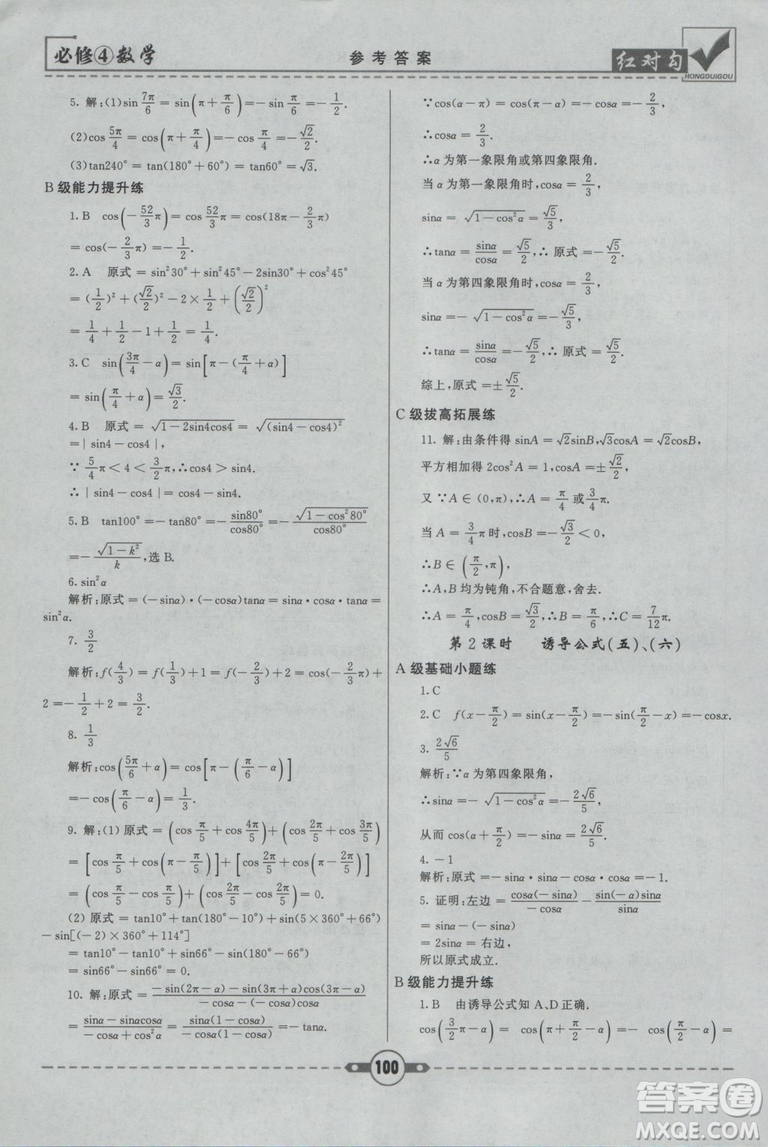 必修④数学
参考答案
红对勾
HONGDUIGOU
5. 解:(1)sin 7π/6 = sin(π + π/6) = −sin π/6 = −1/2.
(2)cos 5π/4 = cos(π + π/4) = −cos π/4 = −√2/2.
(3)tan240° = tan(180° + 60°) = tan60° = √3.
B级能力提升练
1. B cos(−52/3 π) = cos 52/3 π = cos(18π − 2π/3)
= cos(−2π/3) = cos 2π/3 = −1/2.
2. A 原式 = sin²30° + sin²45° − 2sin30° + cos²45°
= (1/2)² + (√2/2)² − 2×1/2 + (√2/2)²
= 1/4 + 1/2 − 1 + 1/2 = 1/4.
3. C sin(3π/4 − α) = sin[π − (π/4 + α)]
= sin(π/4 + α) = √3/2.
4. B 原式 = √(1−2sin4cos4) = √(sin4−cos4)²
= | sin4 − cos4 |,
∵ 5/4 π < 4 < 3/2 π, ∴ sin4 < cos4.
∴ | sin4 − cos4 | = cos4 − sin4.
5. B tan100° = −tan80° = −sin80°/cos80° = −√(1−cos²80°)/cos80°
= −√(1−k²)/k, 选 B.
6. sin²α
解析:原式 = (−sinα)·(−cosα)tanα = sinα·cosα · sinα/cosα =
sin²α.
7. 3/2
解析: f(4/3) = f(1/3) + 1 = f(−2/3) + 2 = cos(−2π/3) +
2 = −1/2 + 2 = 3/2.
8. 1/3
解析: cos(5π/6 + α) = cos[π − (π/6 − α)]
= −cos(π/6 − α) = 1/3.
9. 解:(1)原式 = (cos π/5 + cos 4π/5) + (cos 2π/5 + cos 3π/5)
= [cos π/5 + cos(π − π/5)] + [cos 2π/5 + cos(π − 2π/5)]
= (cos π/5 − cos π/5) + (cos 2π/5 − cos 2π/5) = 0.
(2) 原式 = tan10° + tan(180° − 10°) + sin(5×360° + 66°)
− sin[(−2)×360° + 114°]
= tan10° − tan10° + sin66° − sin(180° − 66°)
= sin66° − sin66° = 0.
10. 解:原式 = −sin(2π−α)−sin(3π+α)cos(3π−α)/−cosα−(−cosα)cosα
= sinα−sinαcosα/−cosα+cos²α = sinα(1−cosα)/−cosα(1−cosα) = −tanα.
∵ cos(α − π) = cos(π − α) = −cosα = −2/3,
∴ cosα = 2/3.
∴ α 为第一象限角或第四象限角.
当 α 为第一象限角时, cosα = 2/3,
sinα = √(1−cos²α) = √5/3,
∴ tanα = sinα/cosα = √5/2, ∴ 原式 = −√5/2.
当 α 为第四象限角时, cosα = 2/3,
sinα = −√(1−cos²α) = −√5/3,
∴ tanα = sinα/cosα = −√5/2, ∴ 原式 = √5/2.
综上,原式 = ±√5/2.
C级拔高拓展练
11. 解:由条件得 sinA = √2sinB, √3cosA = √2cosB,
平方相加得 2cos²A = 1, cosA = ±√2/2,
又 ∵ A ∈ (0,π), ∴ A = π/4 或 3/4 π.
当 A = 3/4 π 时, cosB = −√3/2 < 0,
∴ B ∈ (π/2, π),
∴ A, B 均为钝角,不合题意,舍去.
∴ A = π/4, cosB = √3/2, ∴ B = π/6, ∴ C = 7/12 π.
第2课时 诱导公式(五)、(六)
A级基础小题练
1. C
2. C f(x − π/2) = sin(x − π/2) = −sin(π/2 − x) = −cosx.
3. 2√6/5
解析: ∵ α 为第四象限角,
∴ sinα = −√(1−cos²α) = −2√6/5,
从而 cos(α + π/2) = −sinα = 2√6/5.
4. −1
解析:原式 = (−sinα)/cosα · sinα · cosα/sin²α = −1.
5. 证明:左边 = cosα(−sinα)/−cosα − (−sinα)sinα/sinα
= sinα − (−sinα)
= 2sinα = 右边,
所以原式成立.
B级能力提升练
1. B 由诱导公式知 A、D 正确.
cos(3/2 π − x) = cos(π + π/2 − x) = −cos(π/2 − x) =
100
答案圈
MXQE.COM